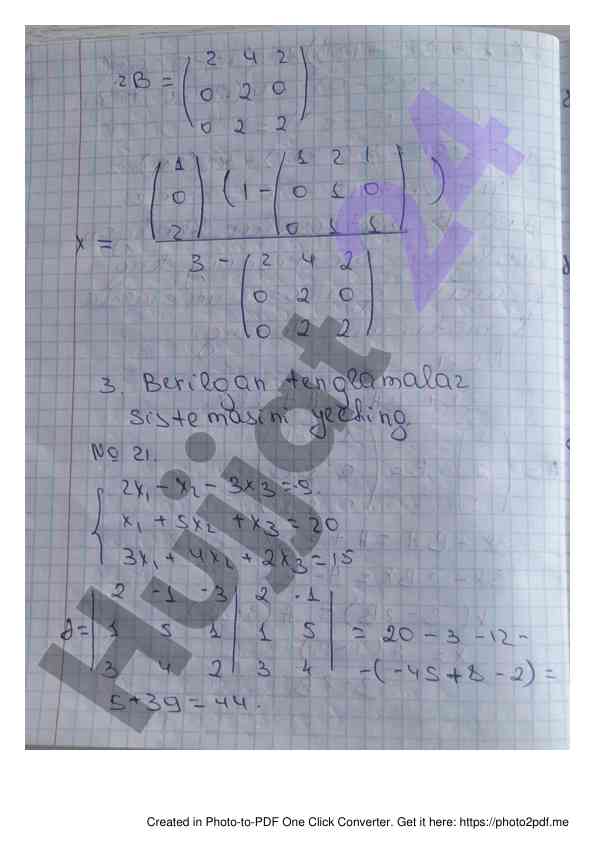 2B = ( 2 4 2
0 2 0
0 2 2 )
( 1
0
2 ) (1 - ( 1 2 1
0 1 0
0 1 1 ) )
x =
3 - ( 2 4 2
0 2 0
0 2 2 )
3. Berilgan tenglamalar
sistemasini yeching.
№ 21.
{ 2x₁ - x₂ - 3x₃ = -9.
x₁ + 5x₂ + x₃ = 20
3x₁ + 4x₂ + 2x₃ = 15
∂ = | 2 -1 -3 | 2 -1 |
| 1 5 1 | 1 5 | = 20 - 3 - 12 -
| 3 4 2 | 3 4 | -(-45 + 8 - 2) =
5 + 39 = 44.
Hujjat 24
Created in Photo-to-PDF One Click Converter. Get it here: https://photo2pdf.me